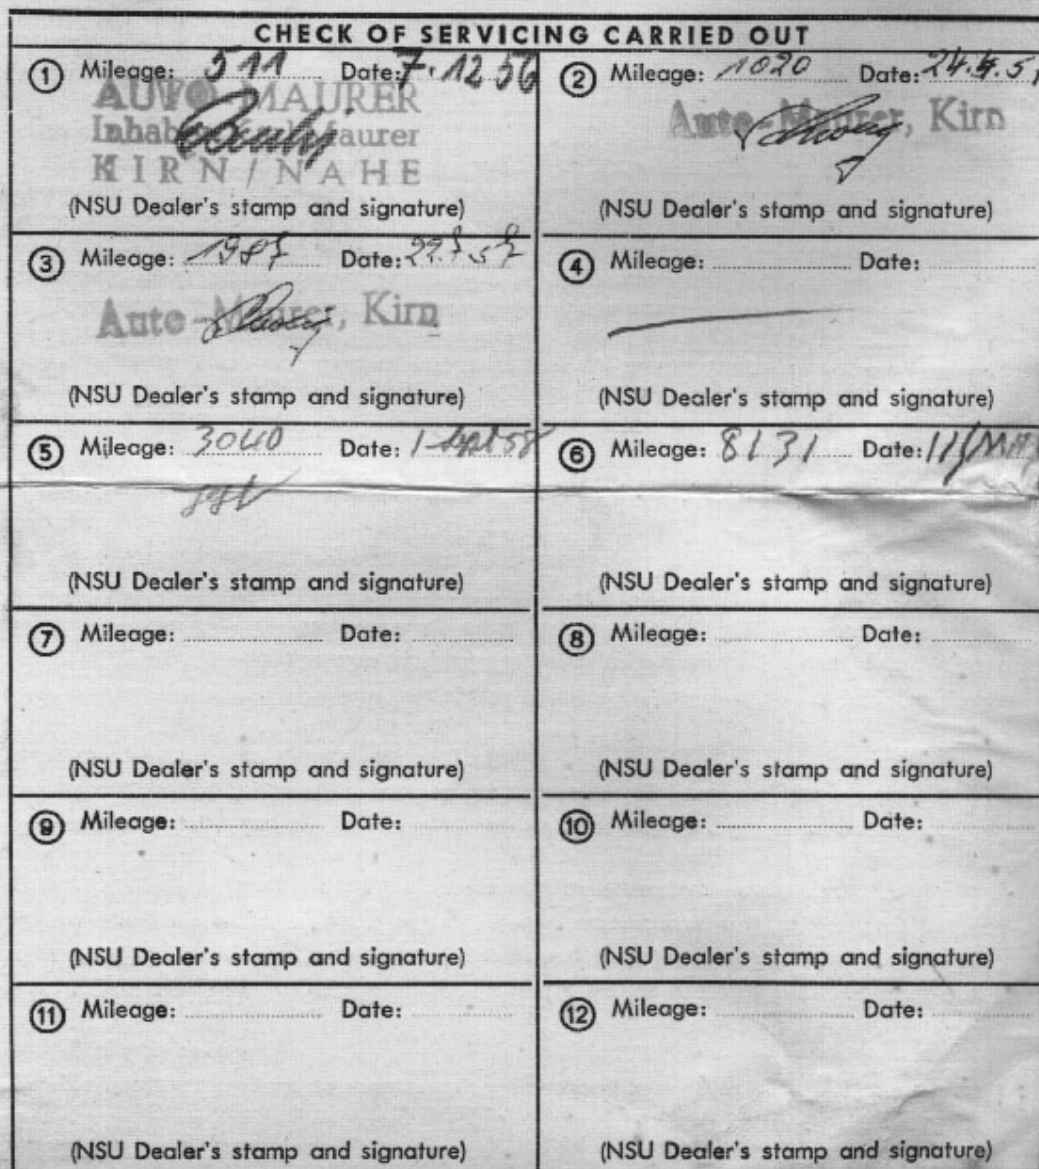 CHECK OF SERVICING CARRIED OUT
1 Mileage: 511 Date: 7.12 56
AUTO MAURER
Inhaber Maurer
KIRN / NAHE
(NSU Dealer's stamp and signature)
2 Mileage: 1020 Date: 24.4.5
Auto-Maurer, Kirn
(NSU Dealer's stamp and signature)
3 Mileage: 1987 Date: 22.7.57
Auto-Maurer, Kirn
(NSU Dealer's stamp and signature)
4 Mileage: Date:
(NSU Dealer's stamp and signature)
5 Mileage: 3040 Date: 1 Sept 58
(NSU Dealer's stamp and signature)
6 Mileage: 8131 Date: 11/MAY
(NSU Dealer's stamp and signature)
7 Mileage: Date:
(NSU Dealer's stamp and signature)
8 Mileage: Date:
(NSU Dealer's stamp and signature)
9 Mileage: Date:
(NSU Dealer's stamp and signature)
10 Mileage: Date:
(NSU Dealer's stamp and signature)
11 Mileage: Date:
(NSU Dealer's stamp and signature)
12 Mileage: Date:
(NSU Dealer's stamp and signature)